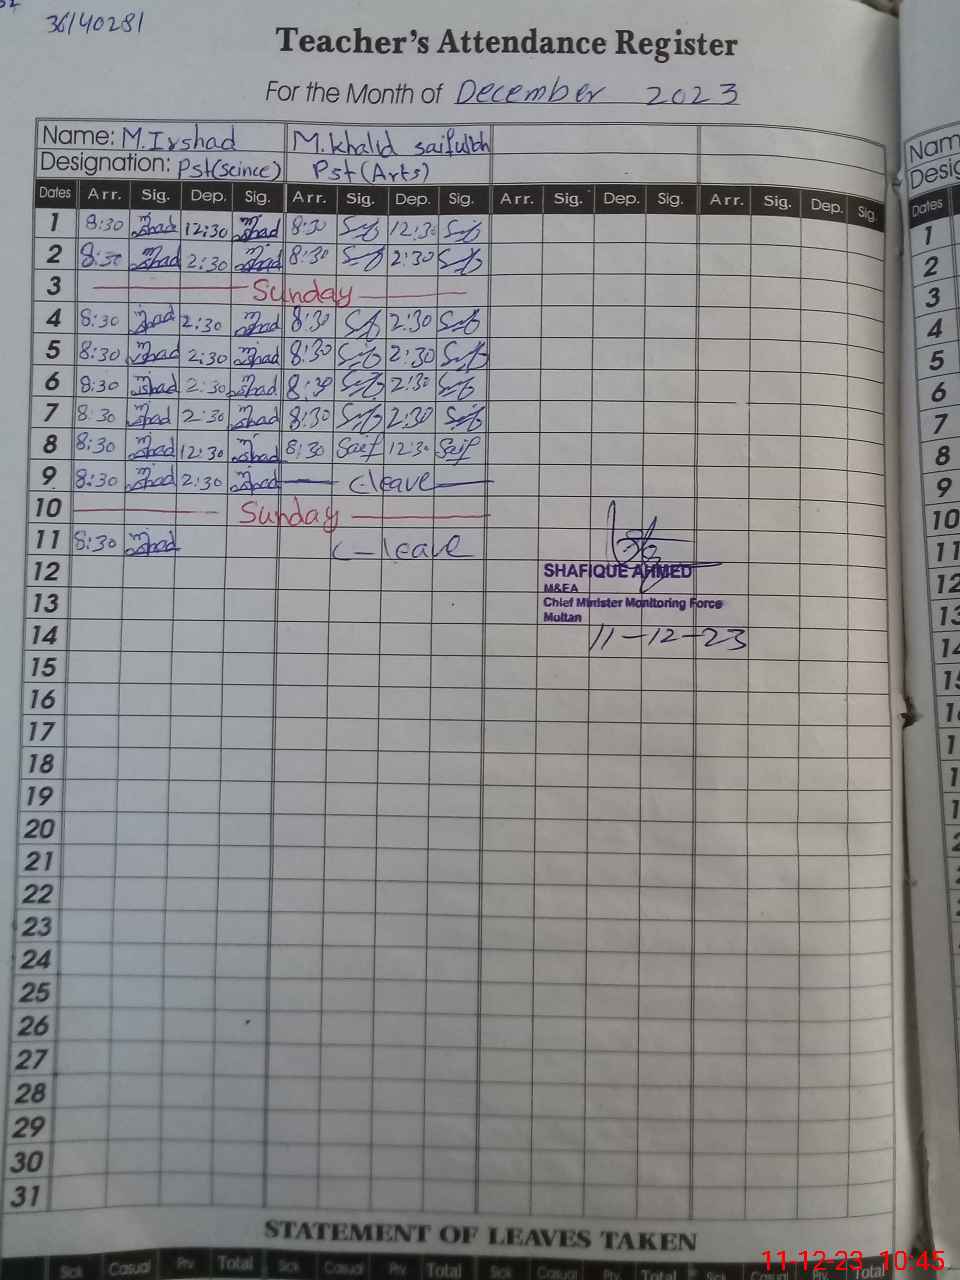 36140281
Teacher's Attendance Register
For the Month of December 2023
Name: M.Irshad M.khalid saifullah
Designation: Pst(scince) Pst(Arts)
Dates Arr. Sig. Dep. Sig. Arr. Sig. Dep. Sig. Arr. Sig. Dep. Sig. Arr. Sig. Dep. Sig.
1 8:30 Irshad 12:30 Irshad 8:30 Saif 12:30 Saif
2 8:30 Irshad 2:30 Irshad 8:30 Saif 2:30 Saif
3 Sunday
4 8:30 Irshad 2:30 Irshad 8:30 Saif 2:30 Saif
5 8:30 Irshad 2:30 Irshad 8:30 Saif 2:30 Saif
6 8:30 Irshad 2:30 Irshad 8:30 Saif 2:30 Saif
7 8:30 Irshad 2:30 Irshad 8:30 Saif 2:30 Saif
8 8:30 Irshad 12:30 Irshad 8:30 Saif 12:30 Saif
9 8:30 Irshad 2:30 Irshad cleave
10 Sunday
11 8:30 Irshad C-leave
12
13
14
15
16
17
18
19
20
21
22
23
24
25
26
27
28
29
30
31
SHAFIQUE AHMED
M&EA
Chief Minister Monitoring Force
Multan
11-12-23
STATEMENT OF LEAVES TAKEN
Sick Casual Prv Total Sick Casual Prv. Total Sick Casual Prv. Total Sick Casual Prv. Total
Nam
Desig
Dates
1
2
3
4
5
6
7
8
9
10
11
12
13
14
11-12-23 10:45